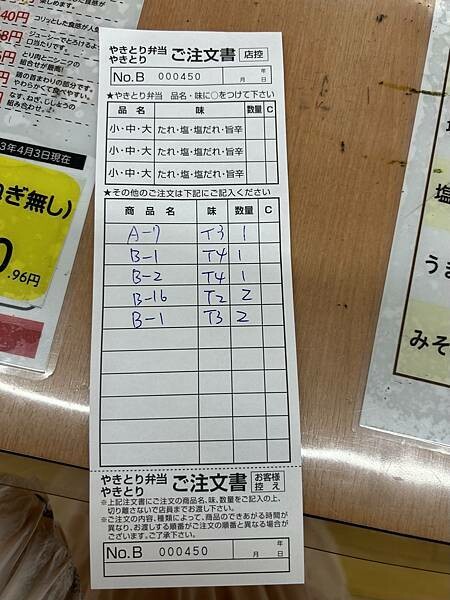 楽しめます。
40円 コリッとした食感が人気
58円 ジューシーでとろけるよ
口当たりです。
とり肉とニンニクの
組合せが最高!
鶏の首まわりの部分です。
やわらかくて食べやすい。
なす、ねぎ、ししとうの
組み合わせ。
3年4月3日現在
ぎ無し)
0
.96円
やきとり弁当
やきとり ご注文書 店控
No.B 000450 年 月 日
★やきとり弁当 品名・味に○をつけて下さい
品名 味 数量 C
小・中・大 たれ・塩・塩だれ・旨辛
小・中・大 たれ・塩・塩だれ・旨辛
小・中・大 たれ・塩・塩だれ・旨辛
★その他のご注文は下記にご記入ください
商品名 味 数量 C
A-7 T3 1
B-1 T4 1
B-2 T4 1
B-16 T2 2
B-1 T3 2
やきとり弁当
やきとり ご注文書 お客様控え
※上記注文書にご注文の商品名、味、数量をご記入の上、
切り離さないで店員までお渡し下さい。
※ご注文の内容、種類によって、商品のできあがる時間が
異なり、お渡しする順番がご注文の順番と異なる場合が
ございます。ご了承下さい。
No.B 000450 年 月 日
塩
うま
みそ